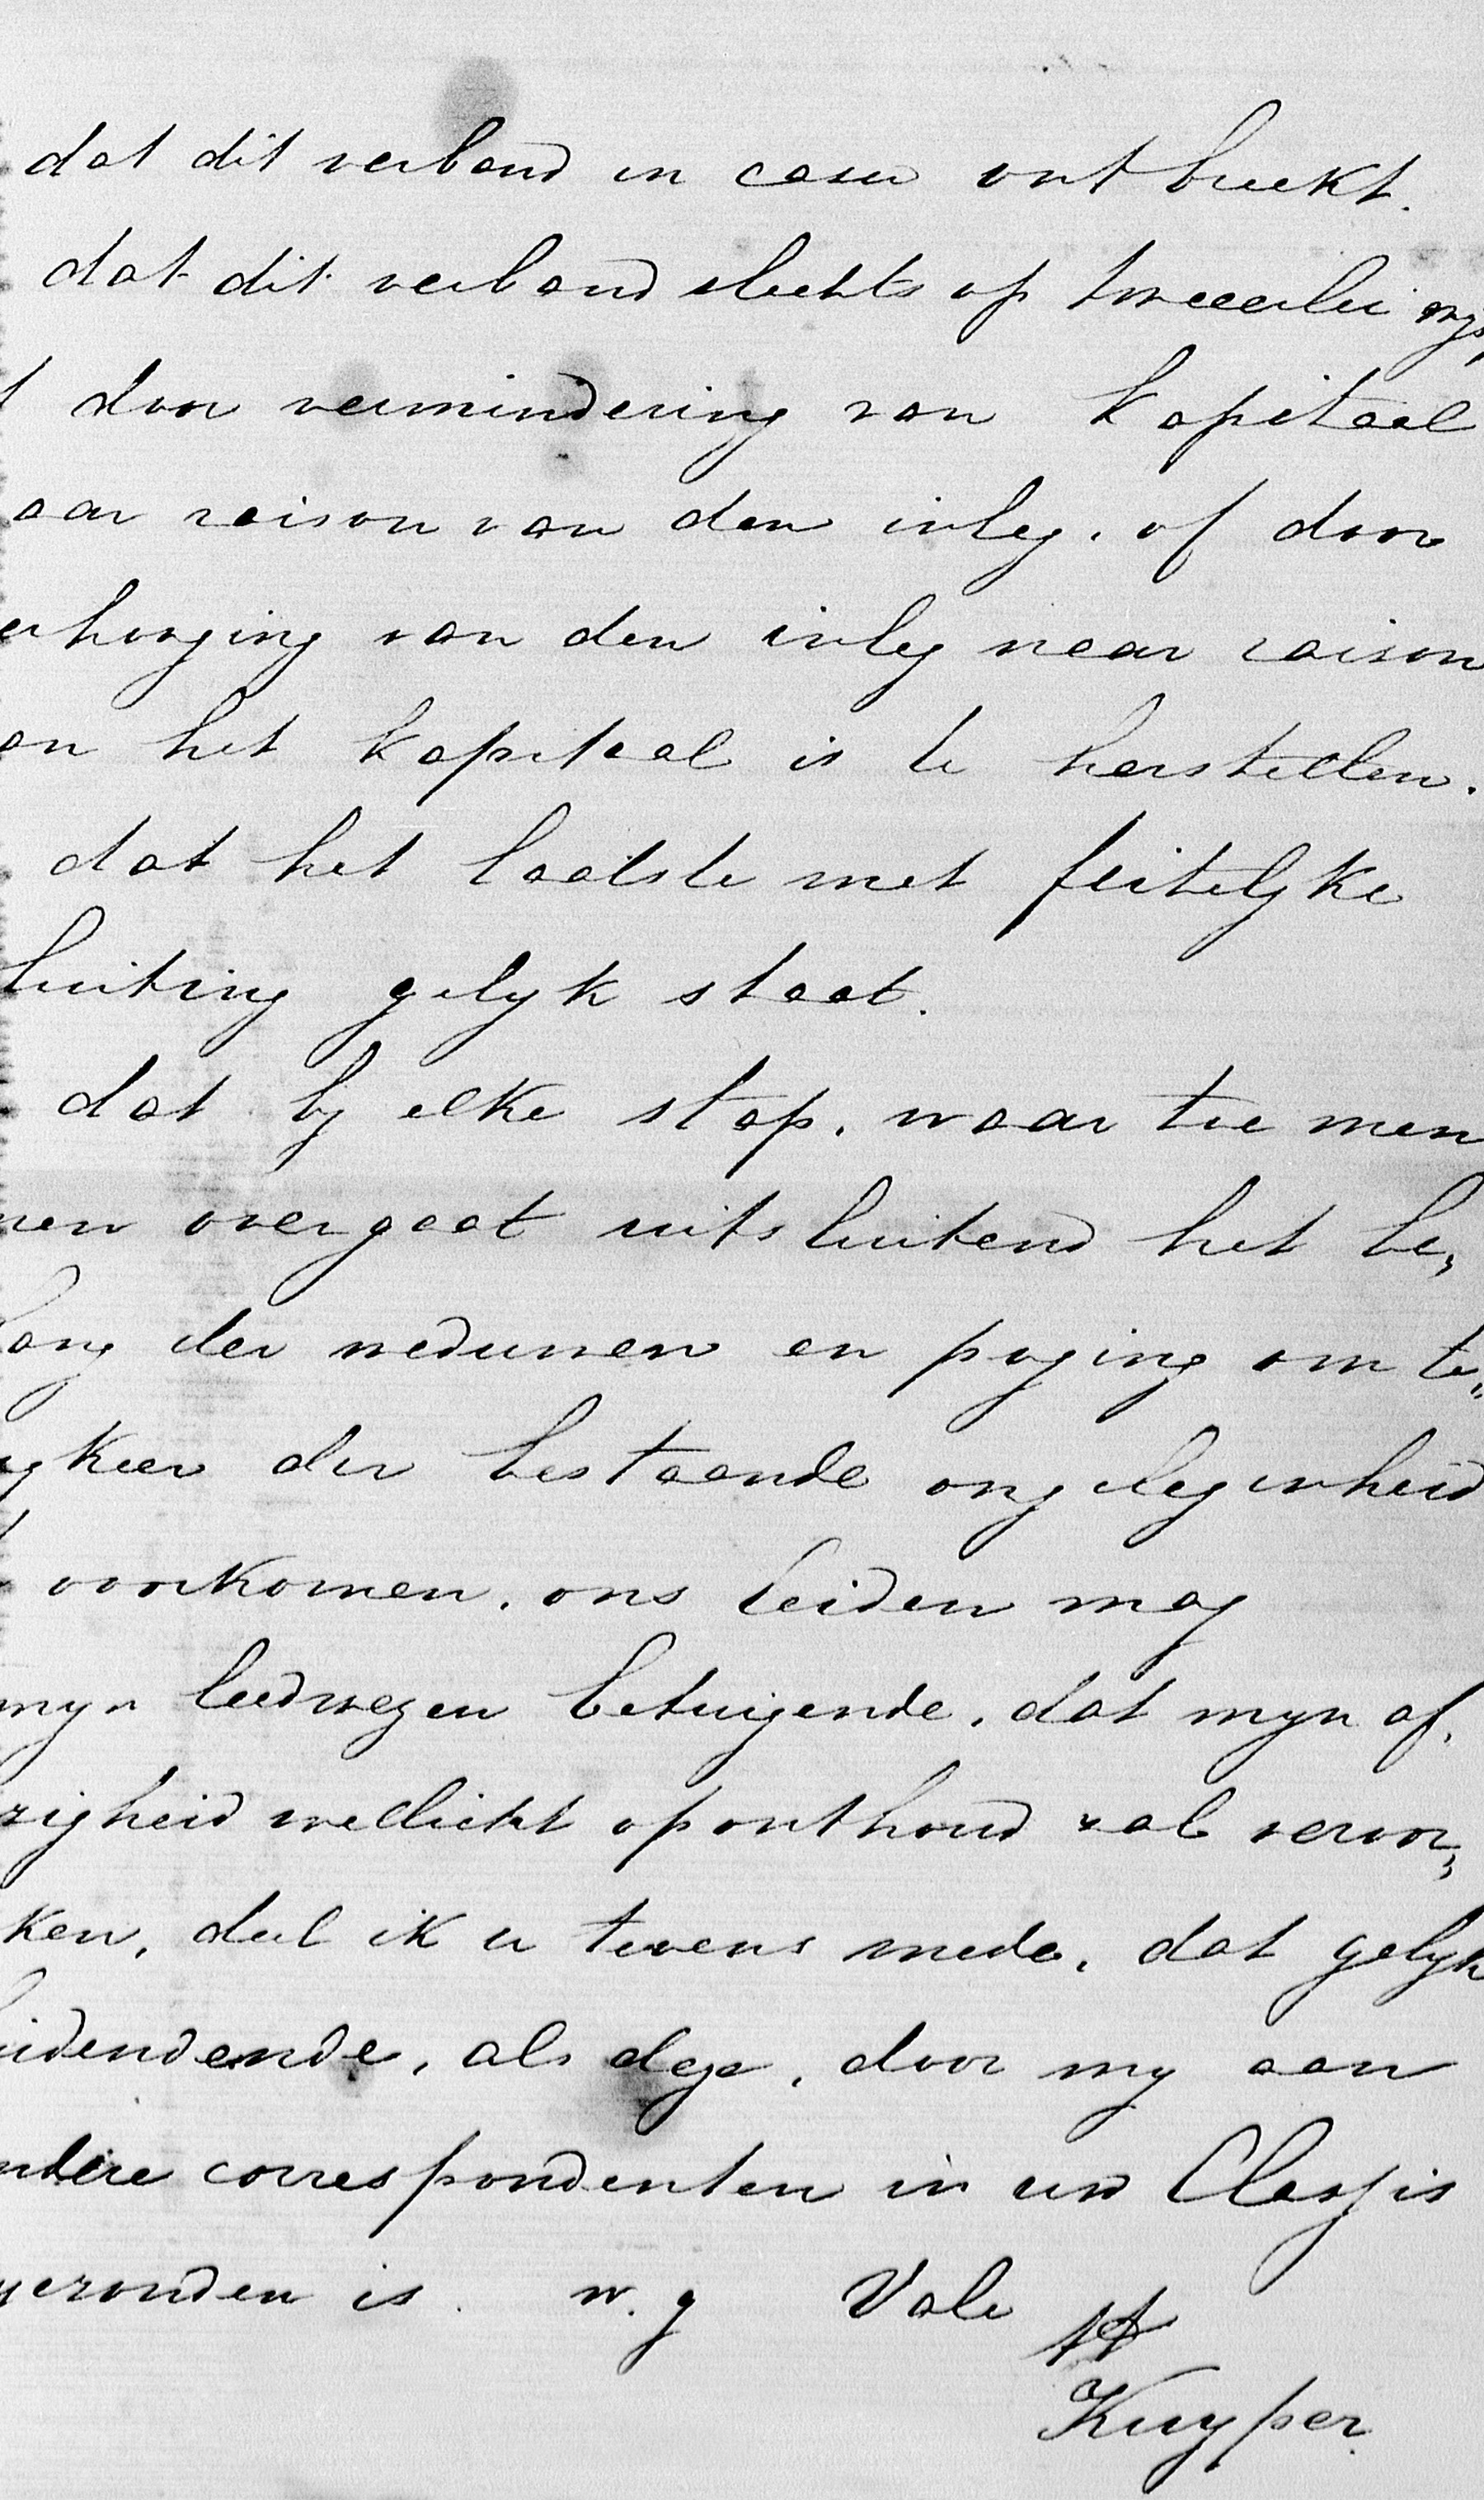 dat dit verband in casu ontbreekt.
dat dit verband slechts op tweeerlei wys
door vermindering van kapitaal
aar raison van den inleg. of door
erhooging van den inleg naar raison
an het kapitaal is te herstellen.
dat het laatste met feitelyke
luiting gelyk staat.
dat by elke stap, waar toe men
overgaat uitsluitend het be„
lang der weduwen en poging om te„
gkeer der bestaande ongelegenheid
voorkomen, ons leiden mag
myn leedwezen betuigende, dat myn af„
zigheid wellicht oponthoud zal veroor„
ken, deel ik u tevens mede, dat gelyk
uidendende, als deze, door my aan
ndere correspondenten in uw Classis
gezonden is. w.g Vale
A
Kuyper.